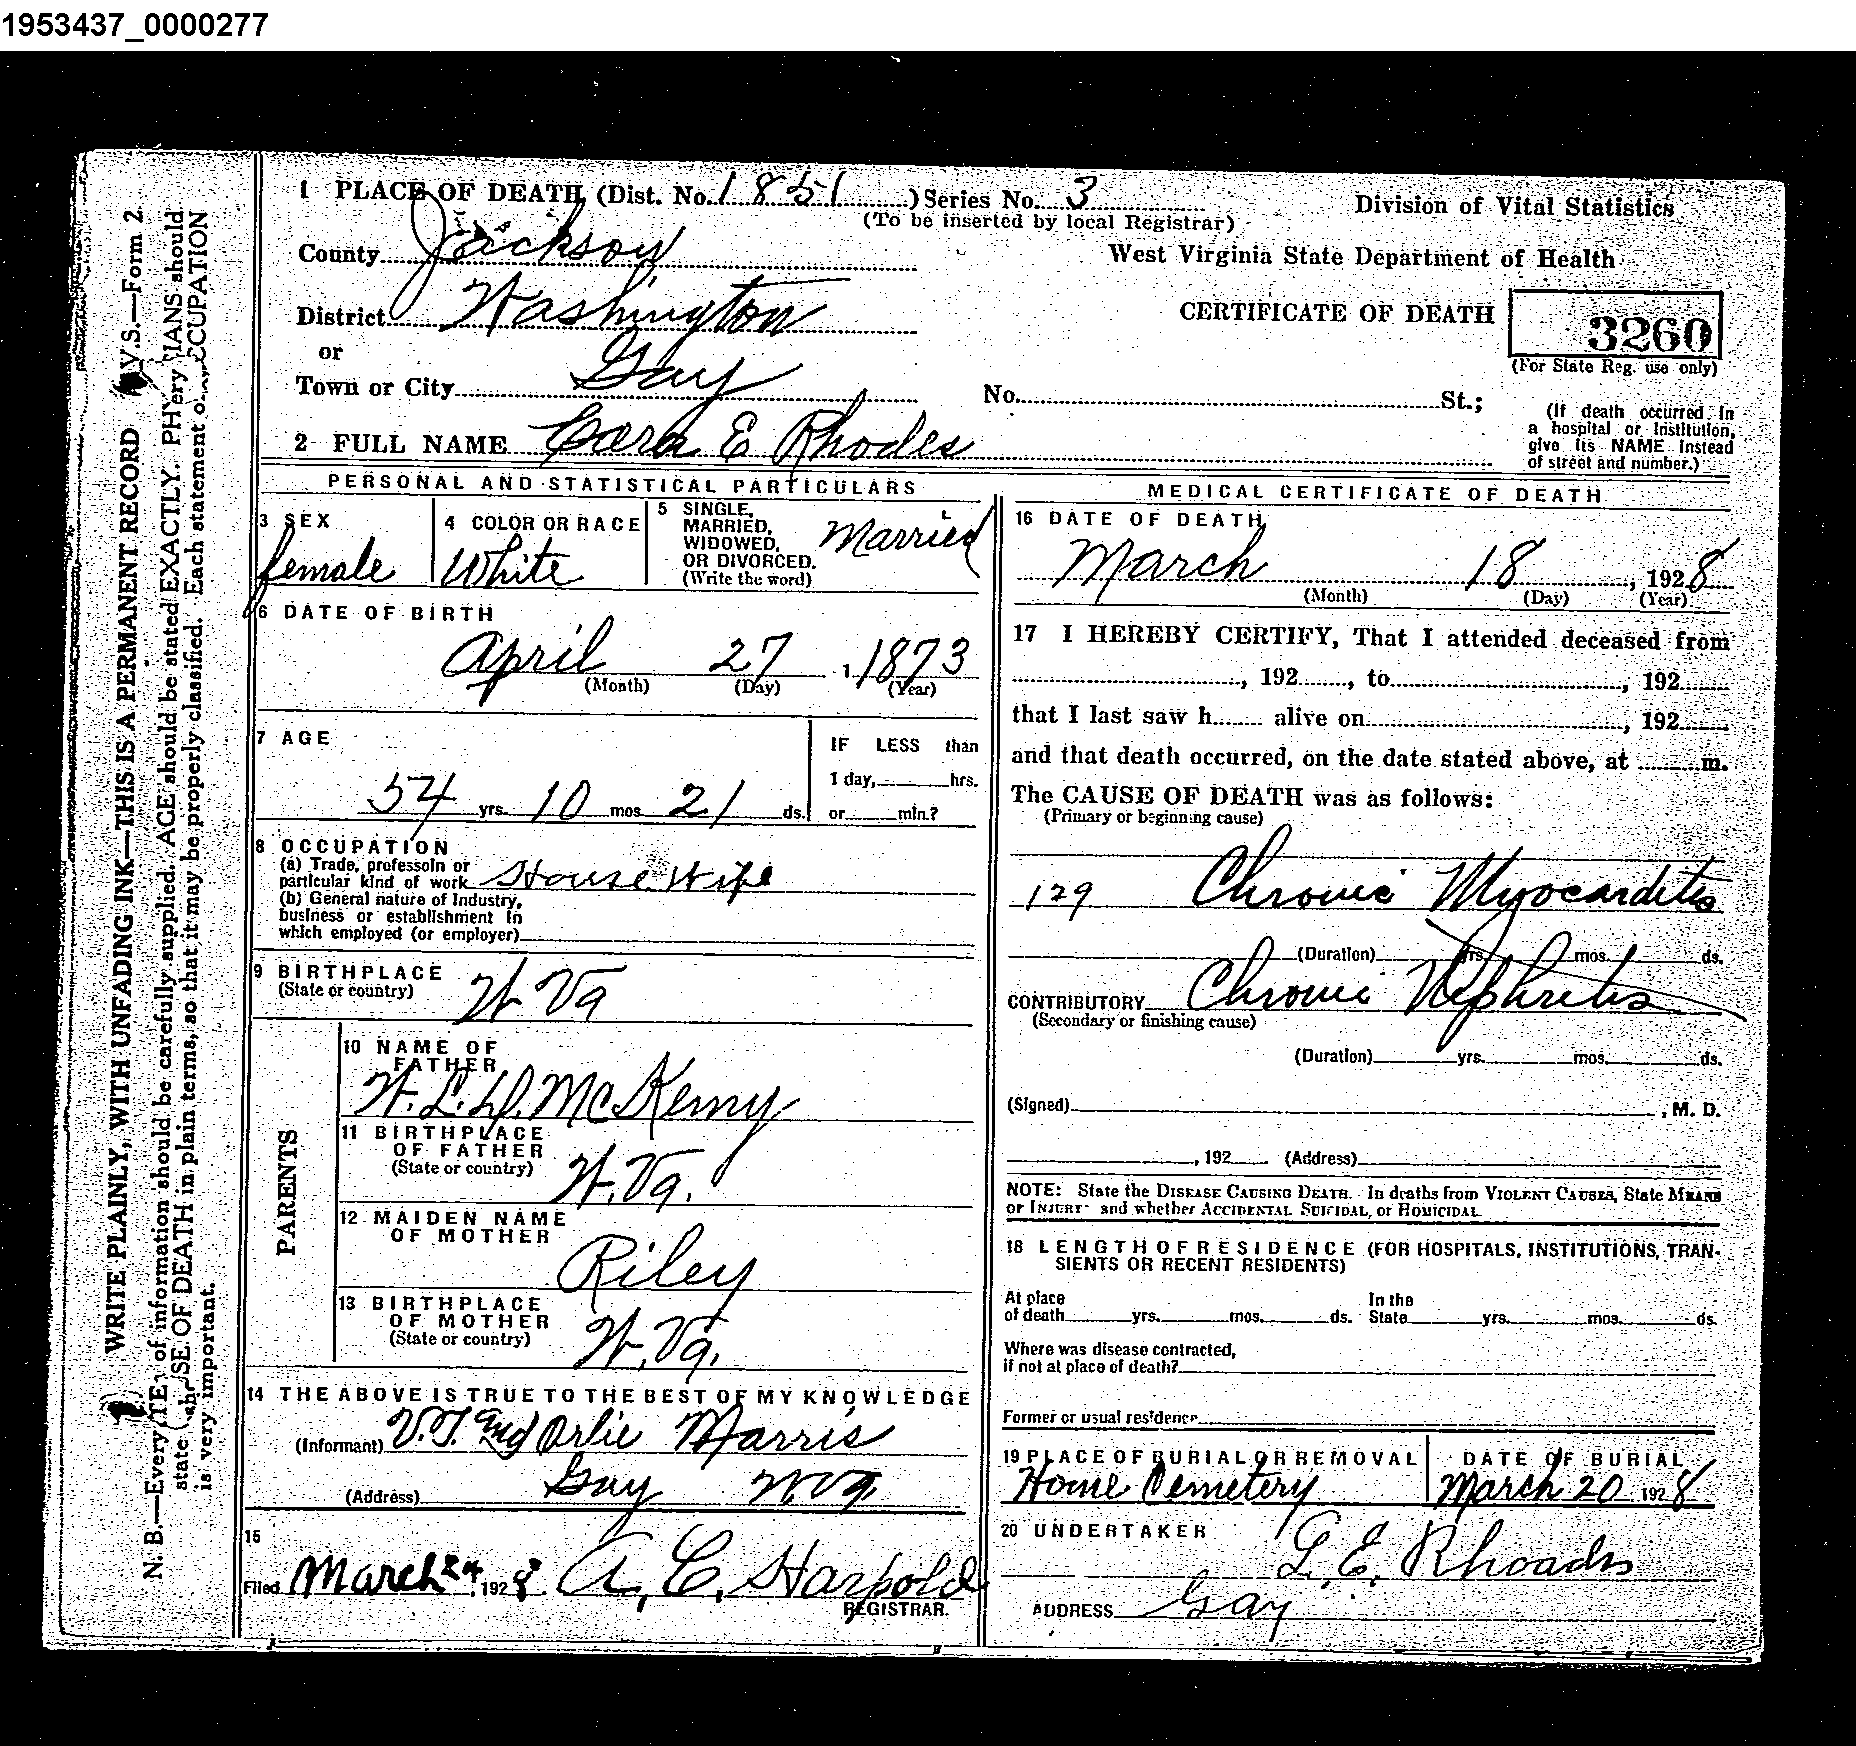 1953437_0000277
V.S.—Form 2.
WRITE PLAINLY, WITH UNFADING INK—THIS IS A PERMANENT RECORD
N. B.—Every of information should be carefully supplied. AGE should be stated EXACTLY. should
state OF DEATH in plain terms, so that it may be properly classified. Each statement OCCUPATION
is very important.
1 PLACE OF DEATH, (Dist. No. 1851 ) Series No. 3
(To be inserted by local Registrar)
Division of Vital Statistics
County Jackson
West Virginia State Department of Health
District Washington
CERTIFICATE OF DEATH 3260
(For State Reg. use only)
or
Town or City Gay
No. St.;
(If death occurred in
a hospital or Institution,
give its NAME instead
of street and number.)
2 FULL NAME Cora E Rhodes
PERSONAL AND STATISTICAL PARTICULARS
3 SEX female
4 COLOR OR RACE White
5 SINGLE,
MARRIED,
WIDOWED,
OR DIVORCED.
(Write the word)
Married
6 DATE OF BIRTH
April 27 1, 1873
(Month) (Day) (Year)
7 AGE
54 yrs. 10 mos 21 ds.
IF LESS than
1 day, hrs.
or min.?
8 OCCUPATION
(a) Trade, professoin or
particular kind of work House Wife
(b) General nature of Industry,
business or establishment in
which employed (or employer)
9 BIRTHPLACE
(State or country) W Va
PARENTS
10 NAME OF
FATHER
11 BIRTHPLACE
OF FATHER
(State or country) W. Va.
12 MAIDEN NAME
OF MOTHER
Riley
13 BIRTHPLACE
OF MOTHER
(State or country) W. Va.
14 THE ABOVE IS TRUE TO THE BEST OF MY KNOWLEDGE
(Informant) V. T. and Orlie Harris
(Address) Gay W. Va.
15
Filed March 24, 1928 A. C. Harpold
REGISTRAR.
MEDICAL CERTIFICATE OF DEATH
16 DATE OF DEATH
March 18, 1928
(Month) (Day) (Year)
17 I HEREBY CERTIFY, That I attended deceased from
, 192 , to , 192
that I last saw h alive on , 192
and that death occurred, on the date stated above, at m.
The CAUSE OF DEATH was as follows:
(Primary or beginning cause)
129 Chronic Myocarditis
(Duration) yrs. mos. ds.
CONTRIBUTORY Chronic Nephritis
(Secondary or finishing cause)
(Duration) yrs. mos. ds.
(Signed) , M. D.
, 192 (Address)
NOTE: State the DISEASE CAUSING DEATH. In deaths from VIOLENT CAUSES, State MEANS
OF INJURY and whether ACCIDENTAL SUICIDAL, or HOMICIDAL
18 LENGTH OF RESIDENCE (FOR HOSPITALS, INSTITUTIONS, TRAN-
SIENTS OR RECENT RESIDENTS)
At place
of death yrs. mos. ds.
In the
State yrs. mos. ds.
Where was disease contracted,
if not at place of death?
Former or usual residence
19 PLACE OF BURIAL OR REMOVAL
Home Cemetery
DATE OF BURIAL
March 20 1928
20 UNDERTAKER
E. Rhoads
ADDRESS Gay